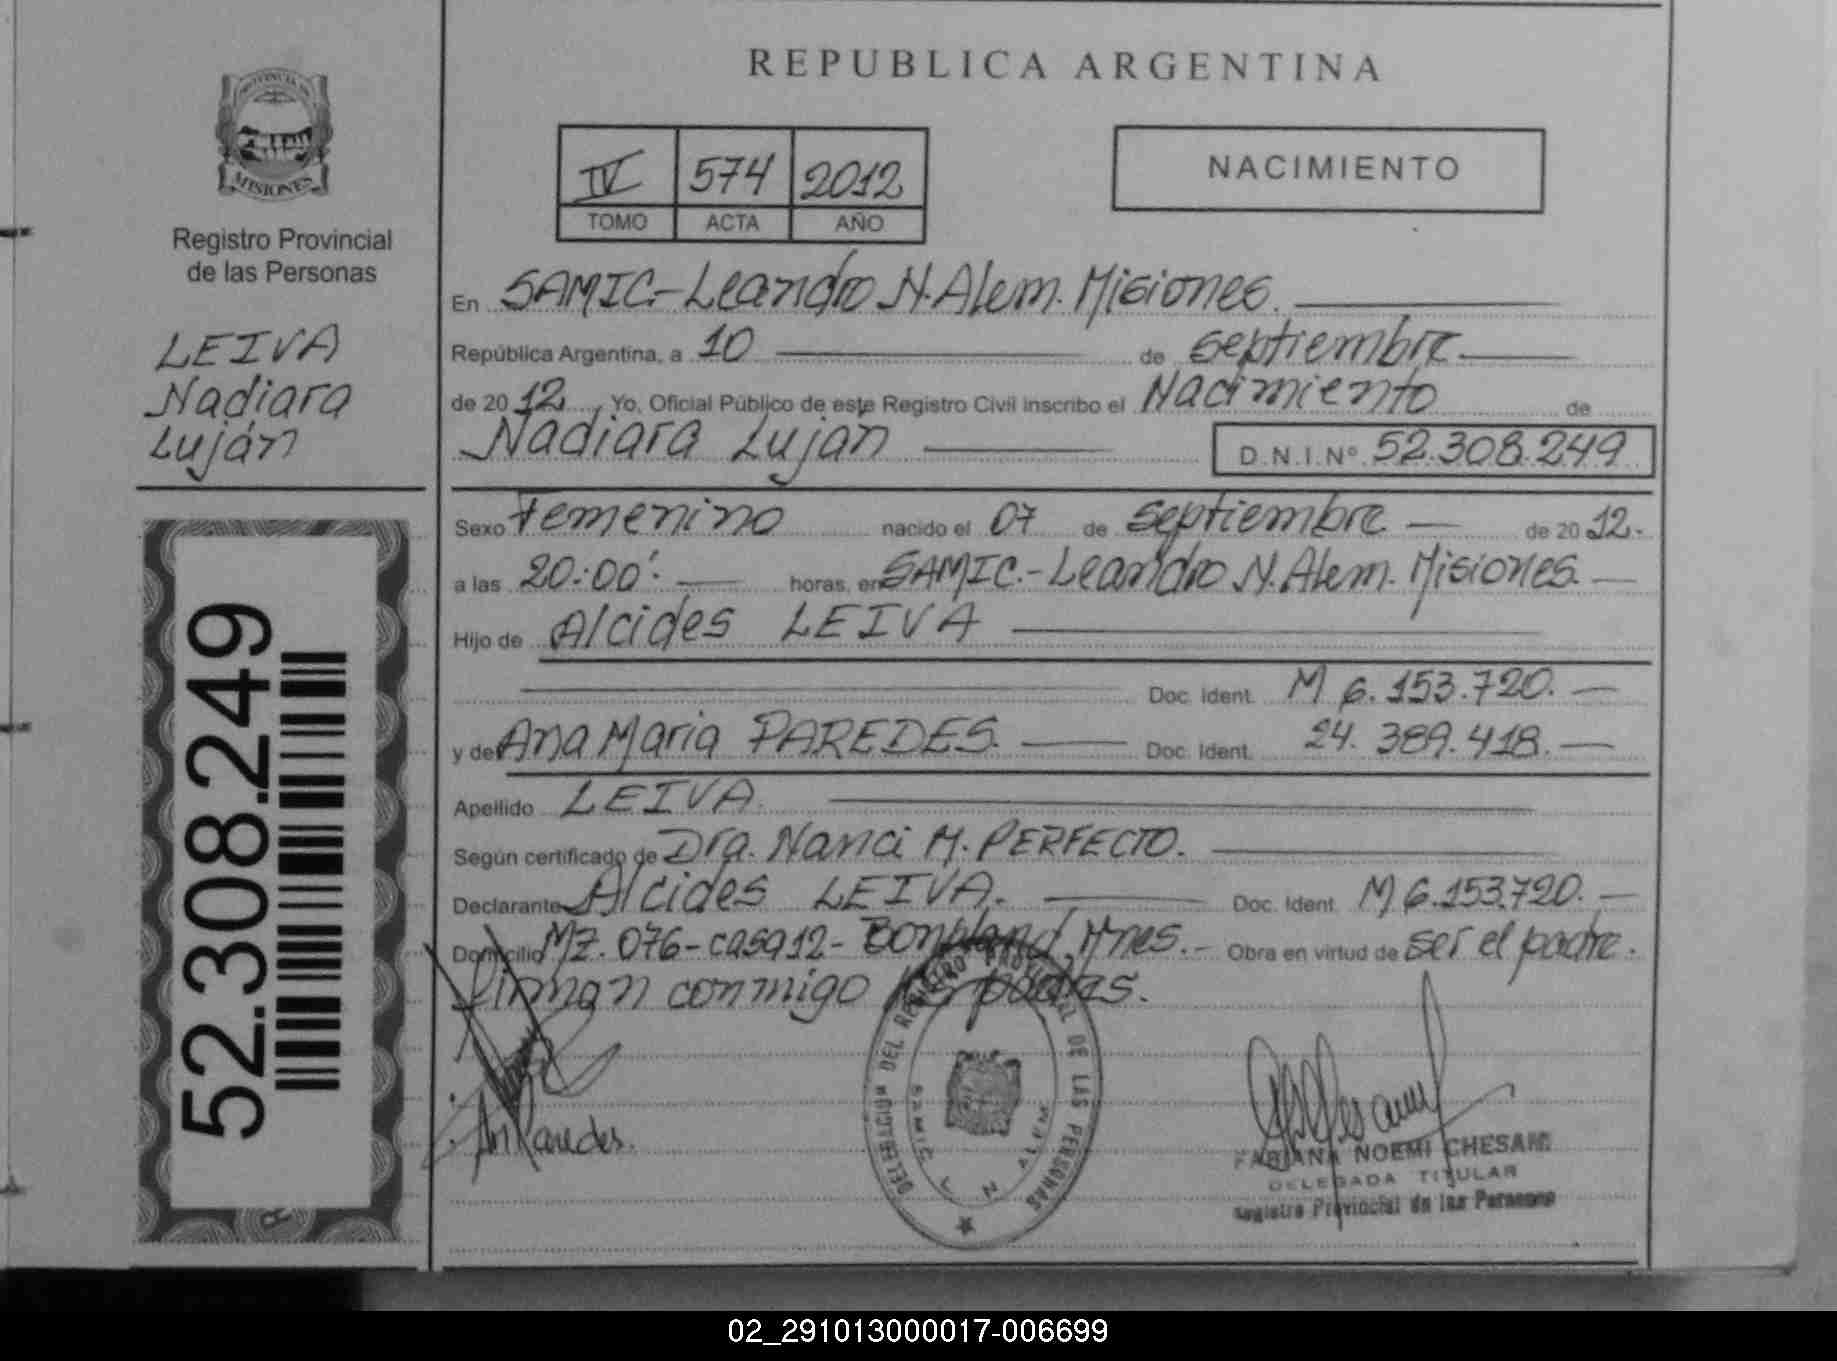 REPUBLICA ARGENTINA
PROVINCIA DE
MISIONES
Registro Provincial
de las Personas
LEIVA
Nadiara
Luján
52.308.249
IV 574 2012
TOMO ACTA AÑO
NACIMIENTO
En SAMIC.-Leandro N.Alem. Misiones.
República Argentina, a 10 de septiembre
de 2012, Yo, Oficial Público de este Registro Civil inscribo el Nacimiento de
Nadiara Lujan D.N.I.Nº 52.308.249
Sexo Femenino nacido el 07 de septiembre de 2012.
a las 20:00'. horas, en SAMIC.-Leandro N.Alem. Misiones.
Hijo de Alcides LEIVA
Doc. Ident. M 6.153.720.
y de Ana Maria PAREDES. Doc. Ident. 24.389.418.
Apellido LEIVA.
Según certificado de Dra. Nanci M. PERFECTO.
Declarante Alcides LEIVA. Doc. Ident. M 6.153.720.
Domicilio MZ. 076-casa12- Bonpland, Mnes.- Obra en virtud de ser el padre.
firman conmigo los padres.
DELEGACION DEL REGISTRO PROVINCIAL DE LAS PERSONAS
SAMIC L N ALEM
Paredes.
FABIANA NOEMI CHESANI
DELEGADA TITULAR
Registro Provincial de las Personas
02_291013000017-006699